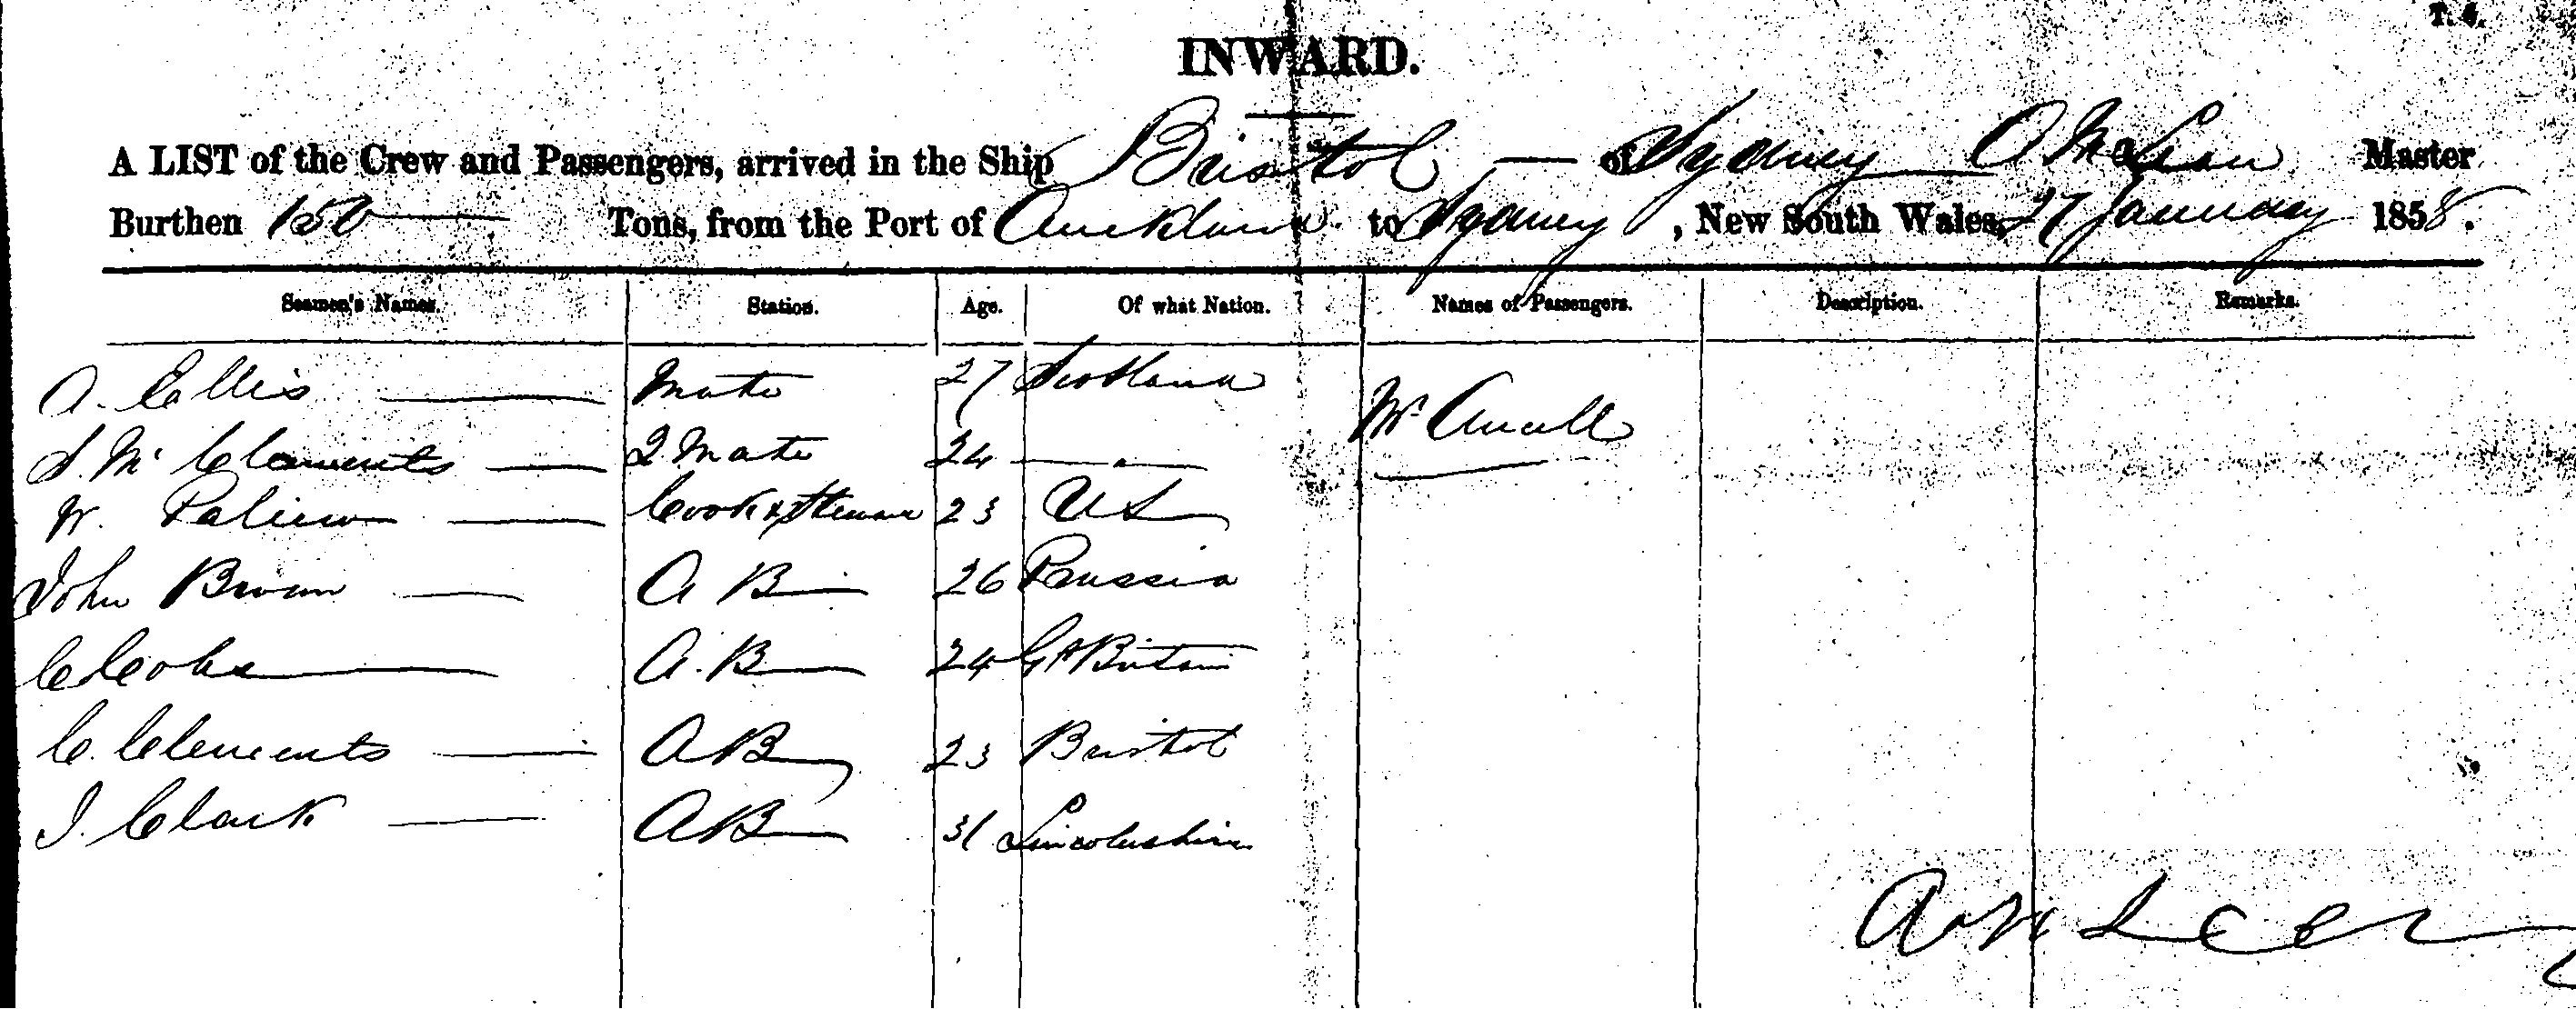 T. 6.
INWARD.
A LIST of the Crew and Passengers, arrived in the Ship Bristol — of Sydney A McLean Master
Burthen 150 Tons, from the Port of Auckland to Sydney, New South Wales, 27 January 1858.
Seamen's Names. Station. Age. Of what Nation. Names of Passengers. Description. Remarks.
A. Collis Mate 27 Scotland
Mr
S. Mc Clements 2 Mate 24 — " —
W. Cook & Steward 23 US
John Brown A B 26 Prussia
A. B 24 Gt Britain
C. Clements A B 23 Bristol
J. Clark A B 31 Lincolnshire